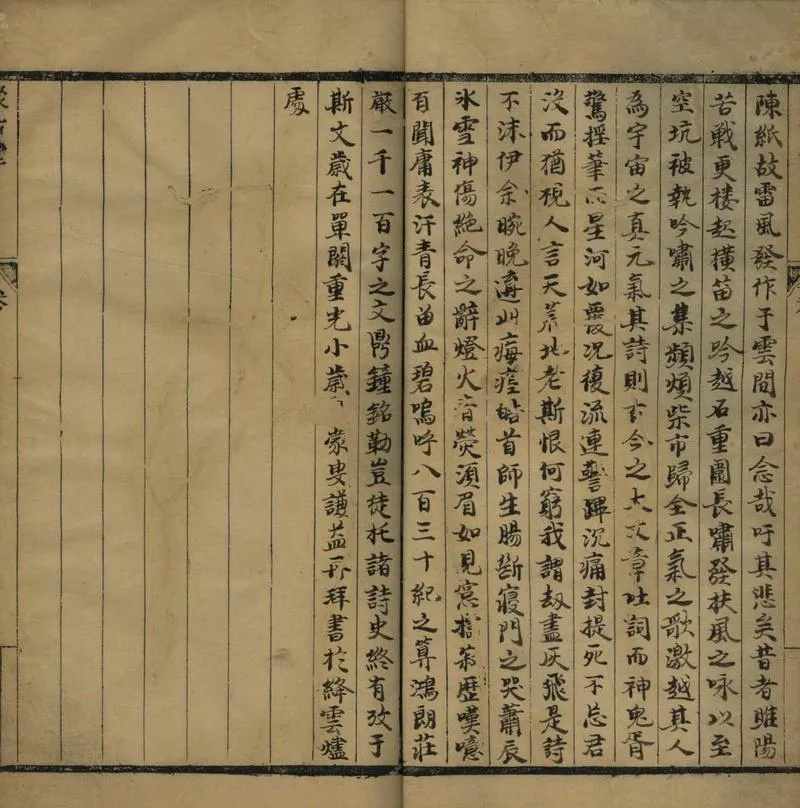 陳紙故雷風發作于雲間亦曰念哉吁其悲矣昔者睢陽
苦戰更楼起橫笛之吟越石重圍長嘯發扶風之咏以至
空坑被執吟嘯之集頻煩柴市歸全正氣之歌激越其人
為宇宙之真元氣其詩則古今之大文章吐詞而神鬼胥
驚揺筆而星河如覆况復流連警蹕沉痛封提死不忘君
没而猶視人言天荒地老斯恨何窮我謂劫盡灰飛是詩
不沫伊余晼晚遘此痗瘽皓首師生腸斷寢門之哭蕭辰
氷雪神傷絶命之辭燈火青熒須眉如見窓櫺歷嘆噫
有聞庸表汗青長留血碧嗚呼八百三十紀之算鴻朗莊
嚴一千一百字之文鼎鐘銘勒豈徒托諸詩史終有攷于
斯文歲在單閼重光小歲 蒙叟謙益再拜書於絳雲爐
處